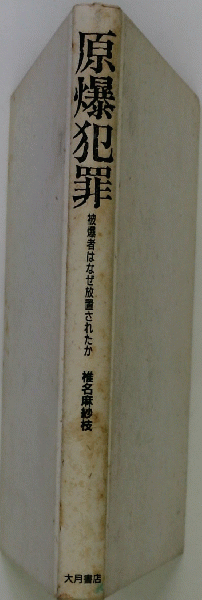 原爆犯罪
被爆者はなぜ放置されたか
椎名麻紗枝
大月書店